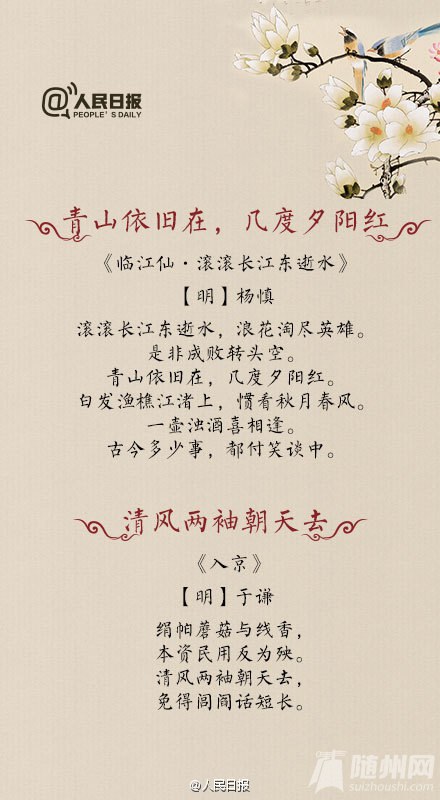 @人民日报
PEOPLE'S DAILY
青山依旧在，几度夕阳红
《临江仙·滚滚长江东逝水》
【明】杨慎
滚滚长江东逝水，浪花淘尽英雄。
是非成败转头空。
青山依旧在，几度夕阳红。
白发渔樵江渚上，惯看秋月春风。
一壶浊酒喜相逢。
古今多少事，都付笑谈中。
清风两袖朝天去
《入京》
【明】于谦
绢帕蘑菇与线香，
本资民用反为殃。
清风两袖朝天去，
免得闾阎话短长。
随州网
suizhoushi.com
@人民日报